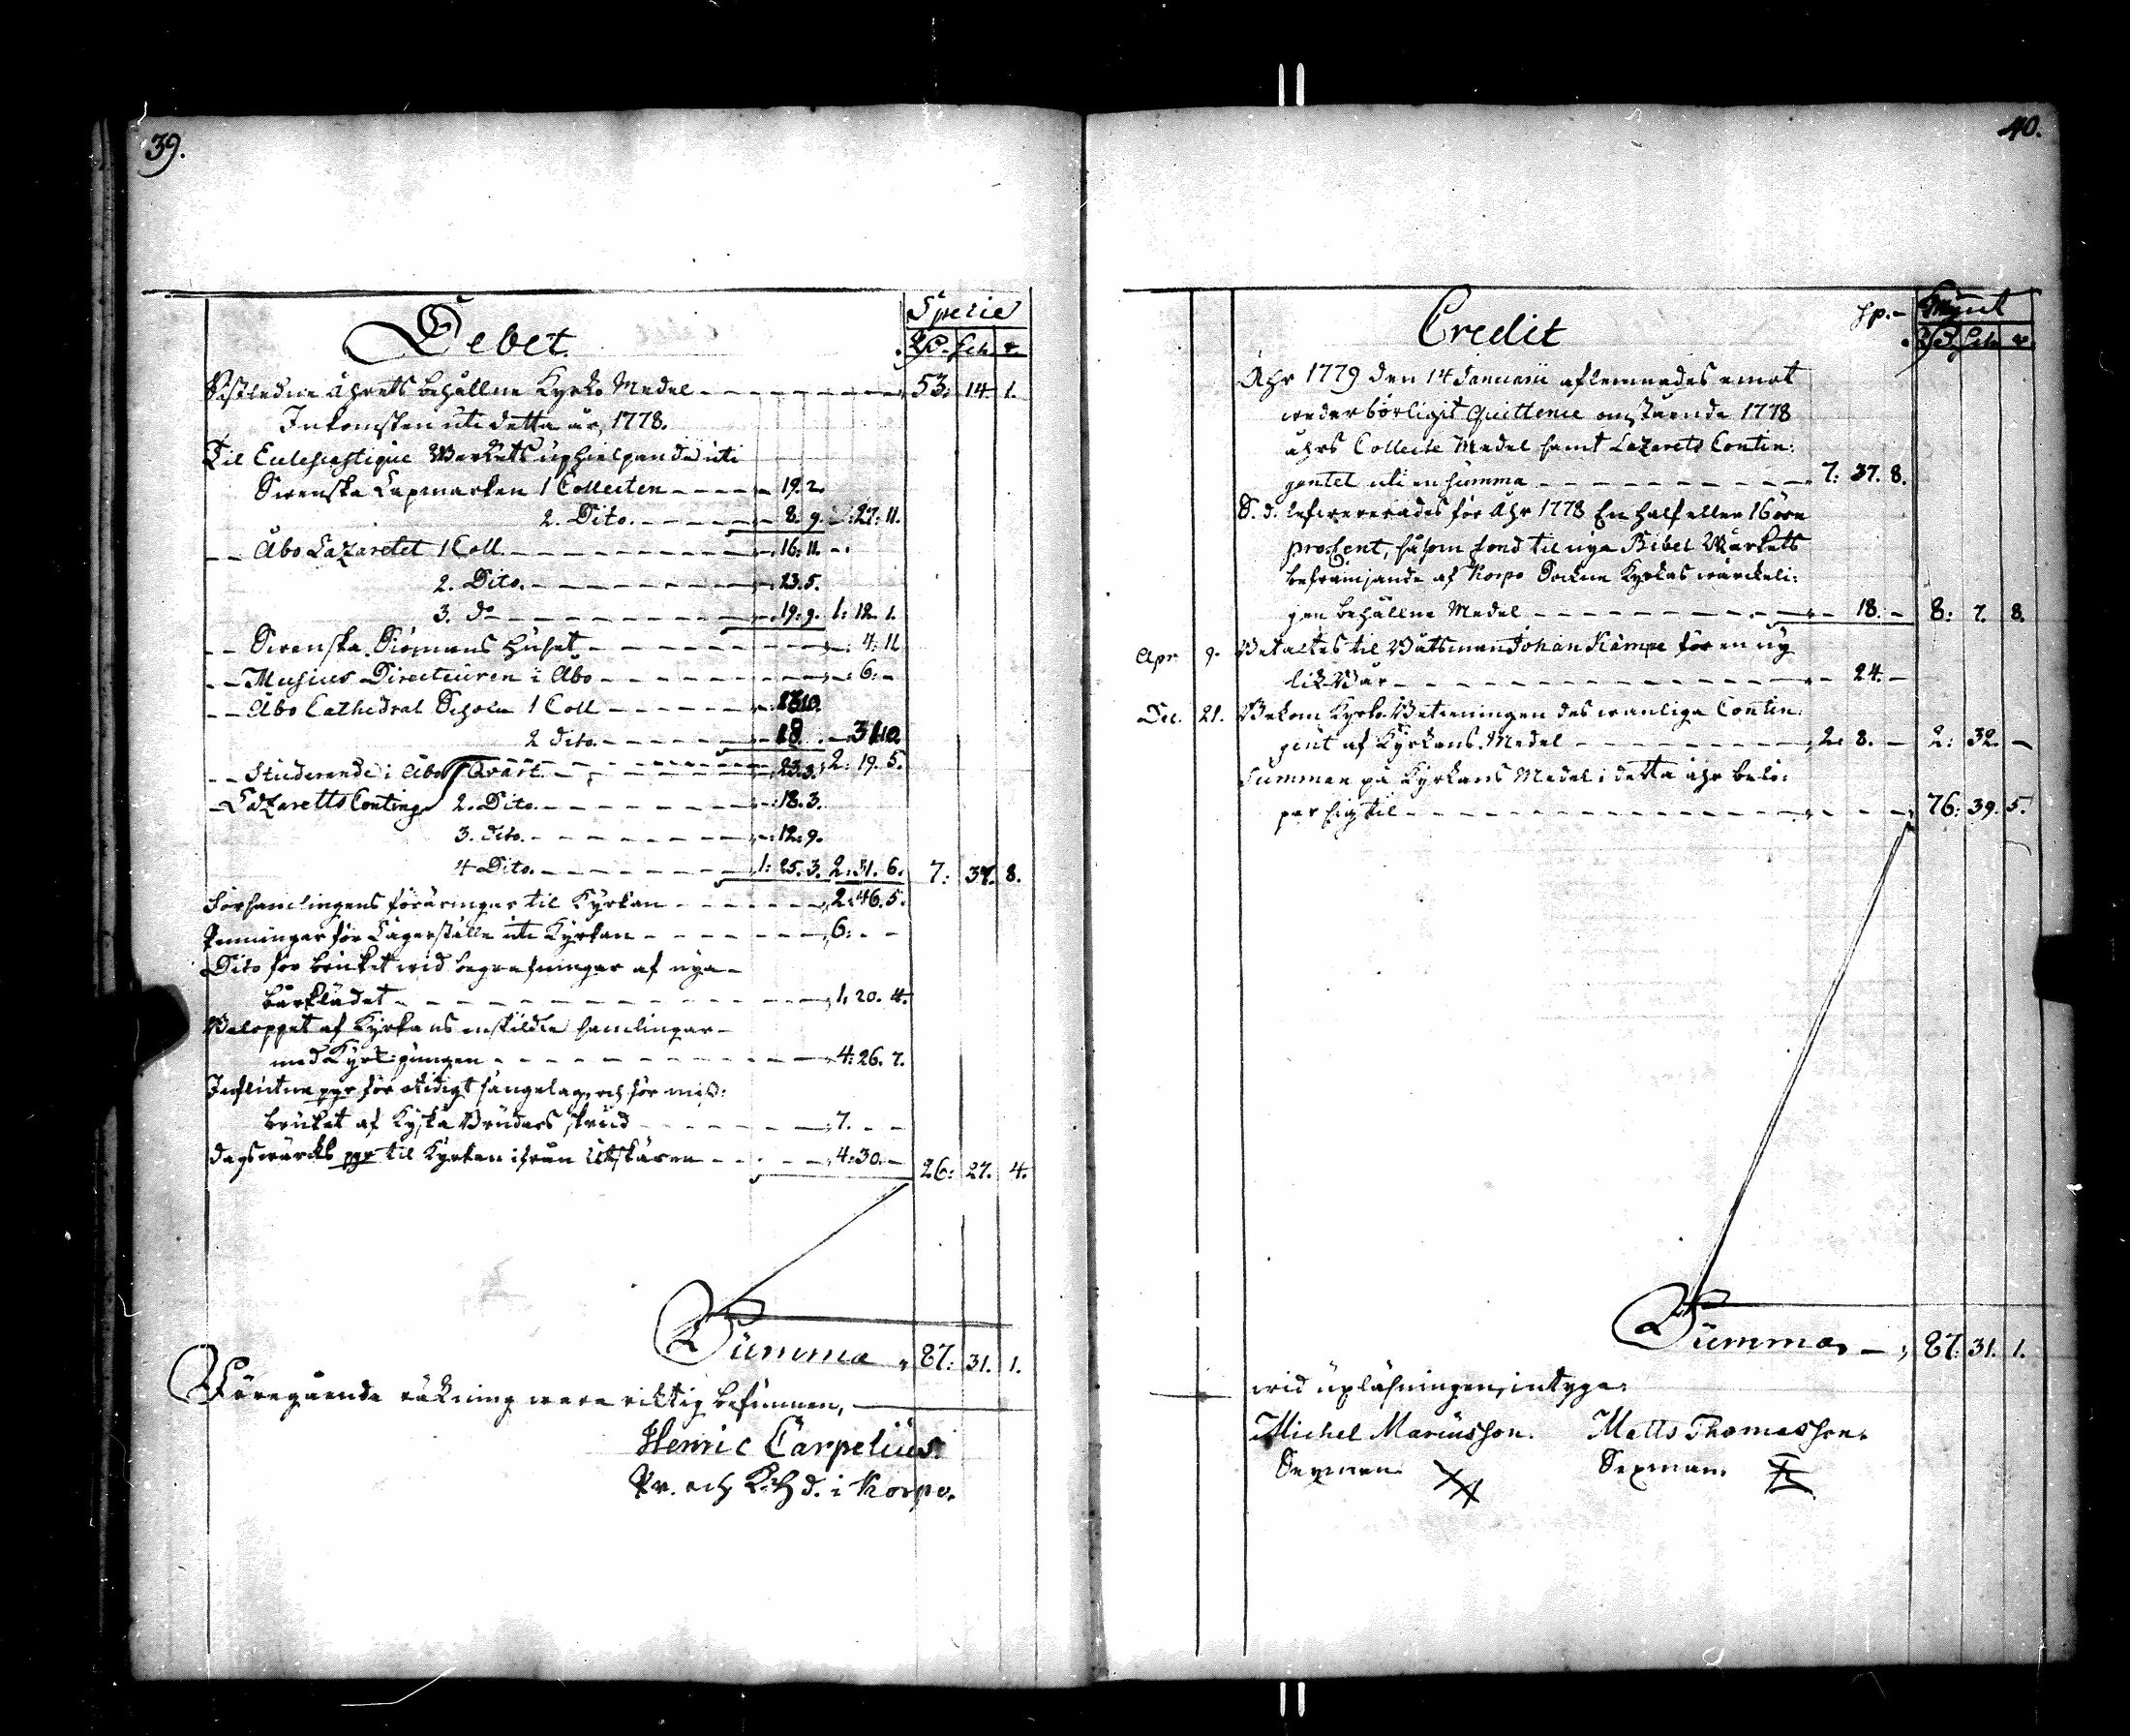 39.
Debet.
Specie
RD. sch. r.
Sistledne Åhrets behållne Kyrko Medel 53: 14. 1.
Inkomsten uti detta år, 1778.
Til Ecclesiastique Werkets uphielpande uti
Swenska Lapmarken 1 Collecten 19. 2.
2. Dito. 8. 9. -: 27: 11.
Åbo Lazaretet 1 Coll. 16. 11.
2. Dito. 23. 5.
3. do 19: 9. 1: 12. 1.
Swenska Siömans Huset 4: 11
Musices Directeuren i Åbo 6: -
Åbo Cathedral Schola 1 Coll
2 dito. 18. 31.10.
Studerande i Åbo 2: 19. 5.
Lazaretts Conting. 1 Qvart. 23. 3.
2. Dito. 18. 3.
3. dito. 12. 9.
4 Dito. 1: 25. 3. 2: 31. 6. 7: 37. 8.
Församlingens föräringar til Kyrkan 2: 46. 5.
Penningar för Lägerställe uti Kyrkan 6: - -
Dito för bruket wid begrafningar af nya
bårklädet 1. 20. 4.
Beloppet af Kyrkans enskildte samlingar
med Kyrk: pungen 4: 26. 7.
Influtne pgr för otidigt sängelag, och för miss-
bruket af Kyska Brudars skrud 7. - -
Dagswärcks pgr til Kyrkan ifrån Utskären 4: 30. - 26: 27. 4.
Summa 87: 31. 1.
Föregående räkning wara riktig befunnen,
Henric Carpelius.
Pr. och K:H d. i Korpo.
40.
Credit
Sp.- Mynt
RD. sch. r.
Åhr 1779 den 14 Januarii aflemnades emot
wederbörligit Quittence omstående 1778
åhrs Collecte Medel samt Lazarets Contin:
gentet uti en summa 7: 37. 8.
S. d. lefwererades för Åhr 1778 En half eller 16 öre
pro Cent, såsom fond til nya Bibel Wärkets
befrämjande af Korpo Sockne Kyrkas wärckeli:
gen behållne Medel 18. - 8: 7. 8.
Apr. 9. Betaltes til Båtsman Johan Kämpe för en ny
lik Bår 24. -
Dec. 21. Bekom Kyrko Betieningen des wanliga Contin:
gent af Kyrkans Medel 2: 8. - 2: 32. -
Summan på Kyrkans Medel i detta åhr belö:
per sig til 76: 39. 5.
Summa 87. 31. 1.
wid upläsningen, intyga:
Michel Mariusson. Matts Thomasson.
Sexman. Sexman.